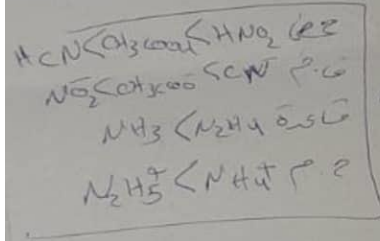 HCN<CH3COOH<HNO2 حمض
NO2<CH3COO<CN ق.م
NH3<N2H4 قاعدة
N2H5+<NH4+ ح.م